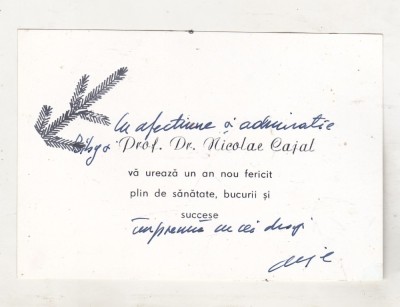 Cu afecțiune și admirație
Prof. Dr. Nicolae Cajal
vă urează un an nou fericit
plin de sănătate, bucurii și
succese
împreună cu cei dragi